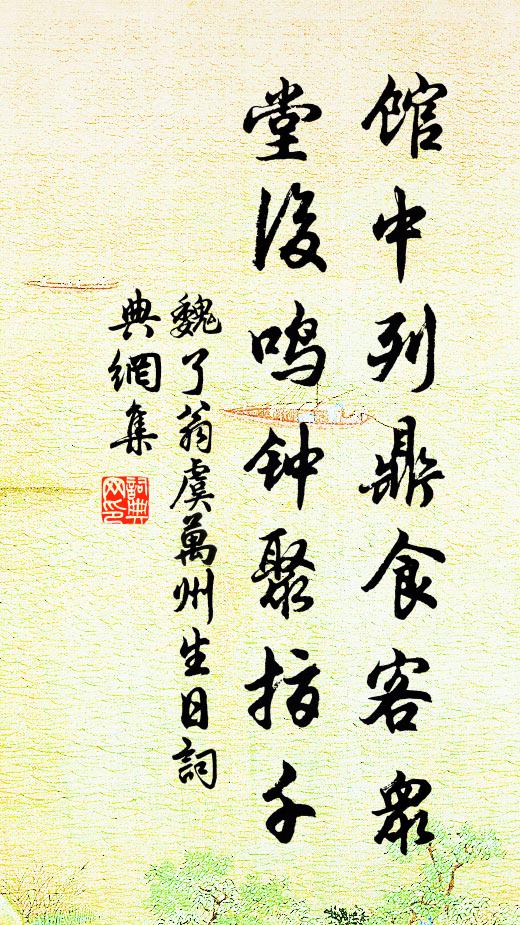 馆中列鼎食客众
堂后鸣钟聚指千
魏了翁虞萬州生日詞
典網集
詞典网印